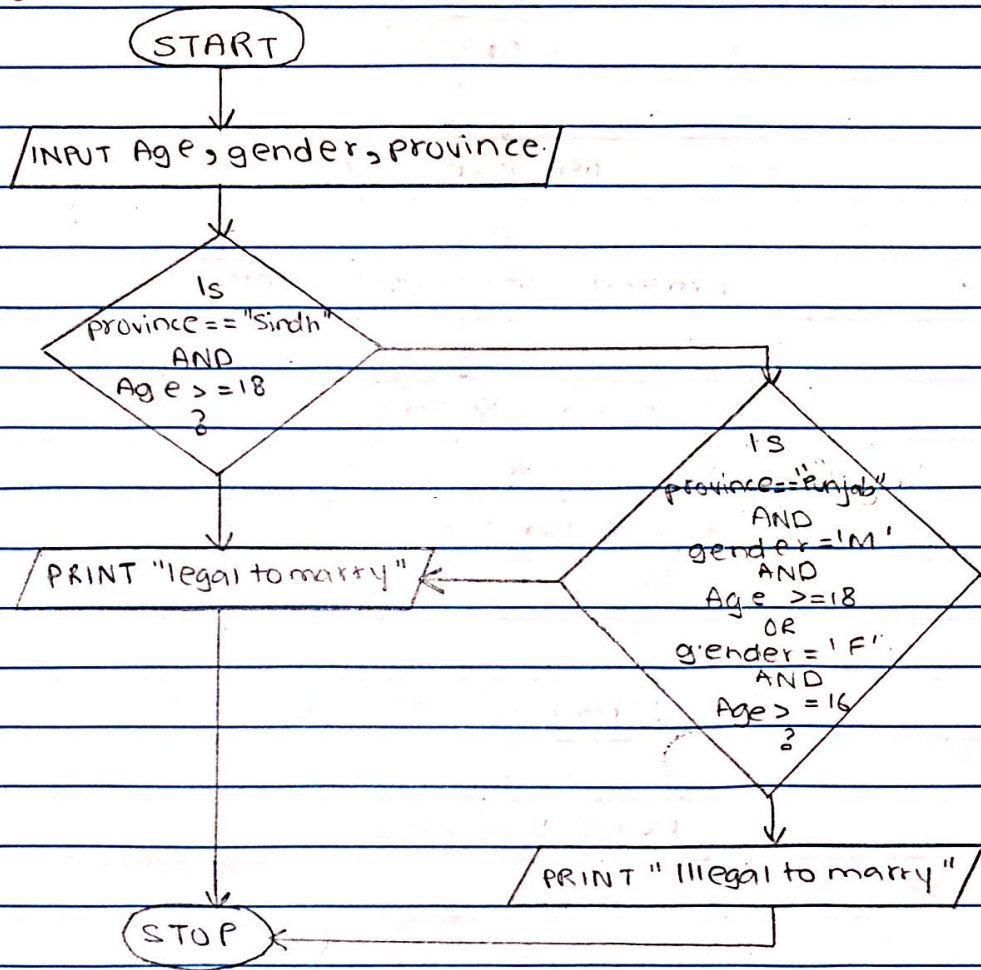 START
INPUT Age, gender, province.
Is
province == "Sindh"
AND
Age >= 18
?
Is
province == "Punjab"
AND
gender = 'M'
AND
Age >= 18
OR
gender = 'F'
AND
Age >= 16
?
PRINT "legal to marry"
PRINT "Illegal to marry"
STOP